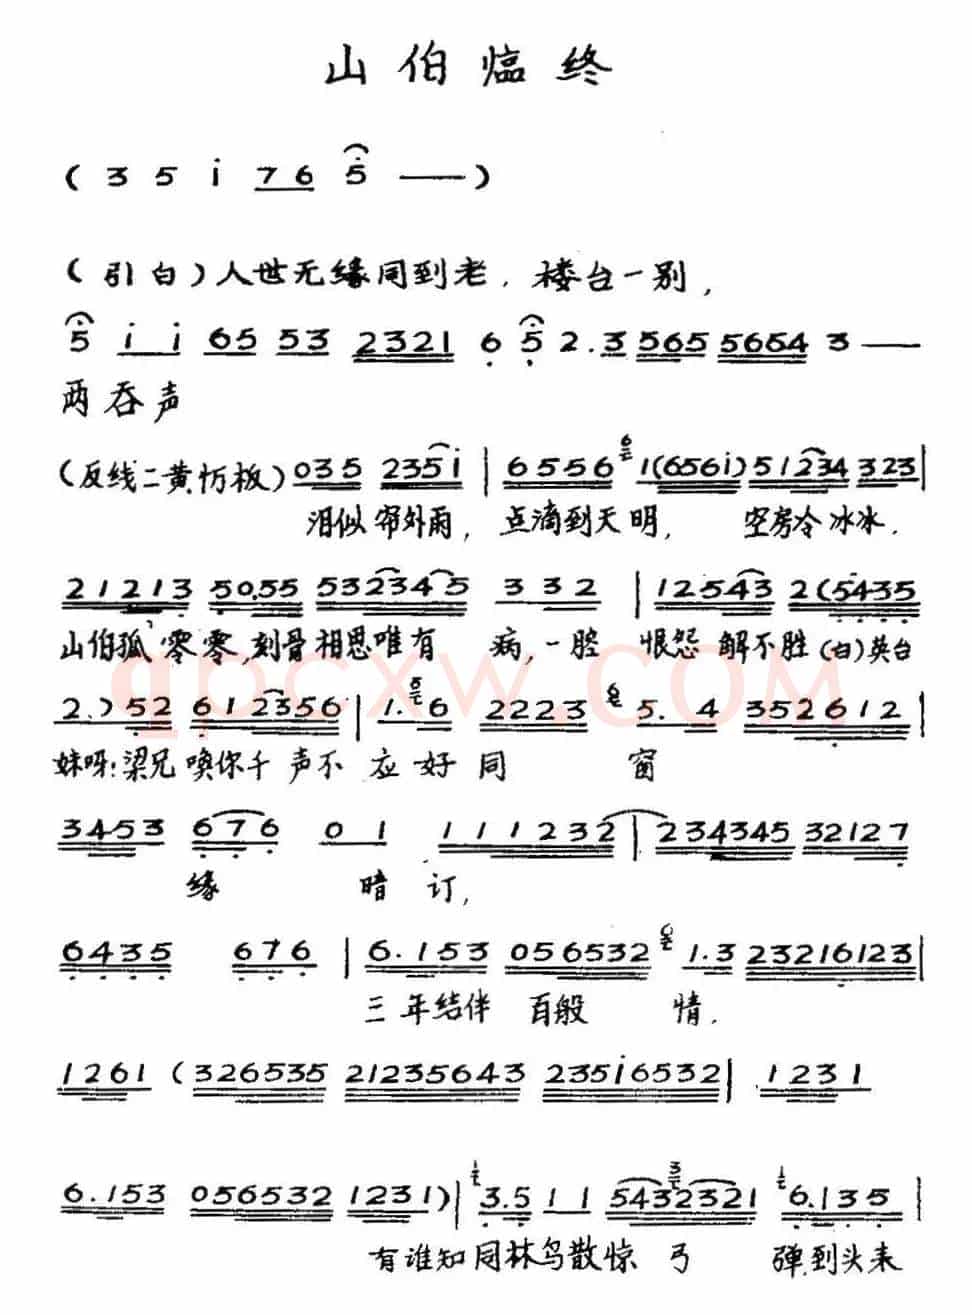 山伯临终
( 3 5 i 7 6 5 — )
(引白)人世无缘同到老，楼台一别，
5 i i 65 53 2321 6 5 2.3 565 5654 3 —
两吞声
(反线二黄忉板) 035 235i | 6556 1(656i) 51234 323 |
泪似帘外雨，点滴到天明，空房冷冰冰.
21213 50.55 532345 332 | 12543 2(5435
山伯孤零零，刻骨相思唯有病，一腔恨怨解不胜(白)英台
2.) 52 612356 | 1.6 2223 5.4 352612 |
妹呀:梁兄唤你千声不应好同窗
3453 676 01 111232 | 234345 32127
缘暗订，
6435 676 | 6.153 056532 1.3 23216123 |
三年结伴百般情.
1261 (326535 21235643 235i6532 | 1231
6.153 056532 1231) | 3.5 11 54323221 6.135 |
有谁知同林鸟散惊弓弹到头来
qpcxw.com